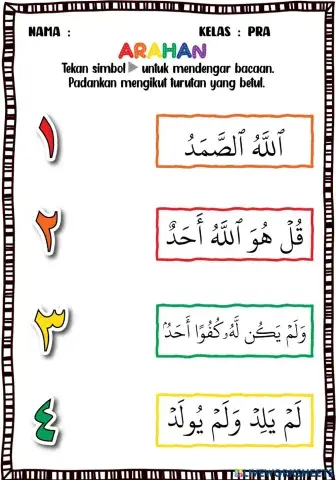 NAMA :
KELAS : PRA
ARAHAN
Tekan simbol ▶ untuk mendengar bacaan.
Padankan mengikut turutan yang betul.
١
ٱللَّهُ ٱلصَّمَدُ
٢
قُلْ هُوَ ٱللَّهُ أَحَدٌ
٣
وَلَمْ يَكُن لَّهُۥ كُفُوًا أَحَدٌۢ
٤
لَمْ يَلِدْ وَلَمْ يُولَدْ
LIVEWORKSHEETS